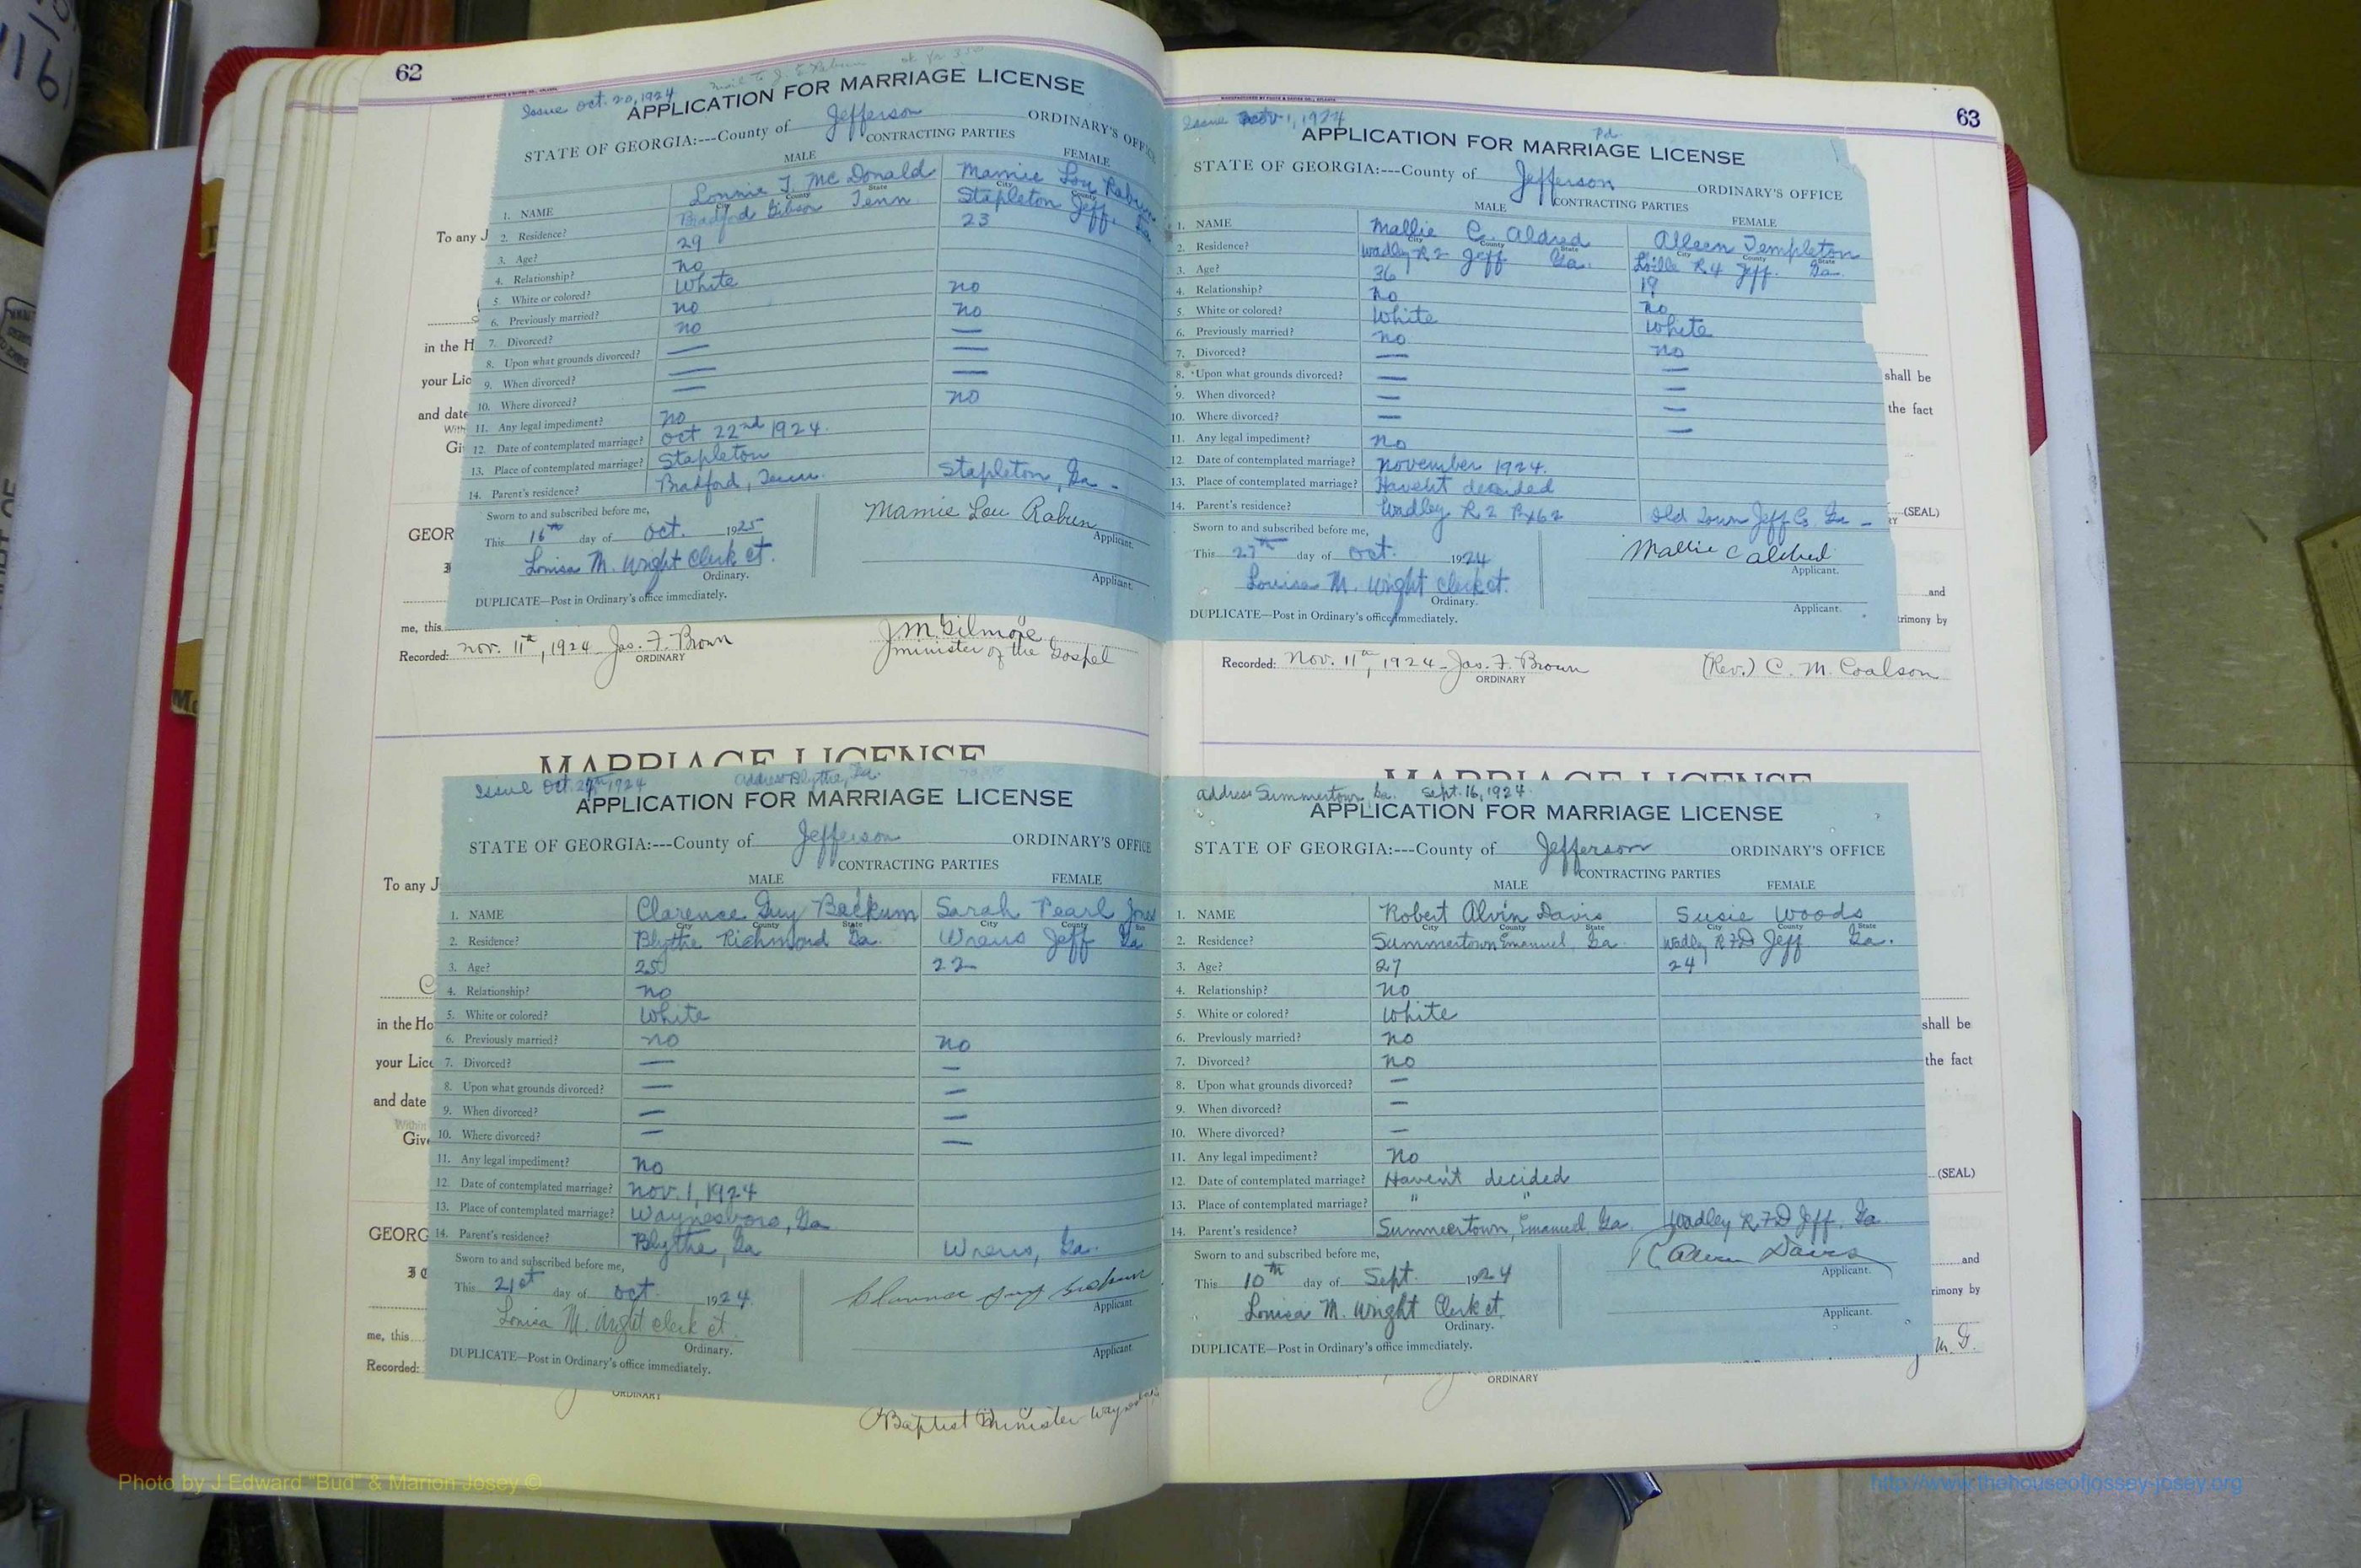 62
mail to J. E. Rabun
Issue Oct. 20, 1924
APPLICATION FOR MARRIAGE LICENSE
STATE OF GEORGIA:---County of Jefferson ORDINARY'S OFFICE
CONTRACTING PARTIES
MALE FEMALE
1. NAME Lonnie T. McDonald Mamie Lou Rabun
City County State City County
2. Residence? Bradford Gibson Tenn Stapleton Jeff. Ga
3. Age? 29 23
4. Relationship? no
5. White or colored? White
6. Previously married? no no
7. Divorced? no no
8. Upon what grounds divorced? — —
9. When divorced? — —
10. Where divorced? — —
11. Any legal impediment? no no
12. Date of contemplated marriage? Oct. 22nd 1924.
13. Place of contemplated marriage? Stapleton
14. Parent's residence? Bradford, Tenn. Stapleton, Ga -
Sworn to and subscribed before me,
This 16th day of Oct. 1925
Mamie Lou Rabun
Applicant.
Louisa M. Wright Clerk ct.
Ordinary.
Applicant.
DUPLICATE—Post in Ordinary's office immediately.
To any J
in the H
your Lic
and date
With
Gi
GEOR
me, this
Recorded: Nov. 11th, 1924 Jas. F. Brown
ORDINARY
J. M. Gilmore
minister of the Gospel
MARRIAGE LICENSE
Issue Oct. 29th, 1924 Address Blythe, Ga.
APPLICATION FOR MARRIAGE LICENSE
STATE OF GEORGIA:---County of Jefferson ORDINARY'S OFFICE
CONTRACTING PARTIES
MALE FEMALE
1. NAME Clarence Guy Backum Sarah Pearl Jones
City County State City County
2. Residence? Blythe Richmond Ga. Wrens Jeff Ga
3. Age? 25 22
4. Relationship? no
5. White or colored? White
6. Previously married? no no
7. Divorced? — —
8. Upon what grounds divorced? — —
9. When divorced? — —
10. Where divorced? — —
11. Any legal impediment? no
12. Date of contemplated marriage? Nov. 1, 1924
13. Place of contemplated marriage? Waynesboro, Ga
14. Parent's residence? Blythe, Ga Wrens, Ga.
Sworn to and subscribed before me,
This 21st day of Oct 1924.
Clarence Guy
Applicant.
Louisa M. Wright Clerk ct.
Ordinary.
Applicant.
DUPLICATE—Post in Ordinary's office immediately.
To any J
in the Ho
your Lice
and date
Within
Give
GEORG
me, this
Recorded:
ORDINARY
Baptist Minister
63
Issue Nov. 1, 1924
Pd.
APPLICATION FOR MARRIAGE LICENSE
STATE OF GEORGIA:---County of Jefferson ORDINARY'S OFFICE
CONTRACTING PARTIES
MALE FEMALE
1. NAME Mallie C. Aldred Alleen Templeton
City County State City County State
2. Residence? Wadley R 2 Jeff Ga. L'ville R. 4 Jeff. Ga.
3. Age? 36 19
4. Relationship? no no
5. White or colored? White White
6. Previously married? no no
7. Divorced? — —
8. Upon what grounds divorced? — —
9. When divorced? — —
10. Where divorced? — —
11. Any legal impediment? no
12. Date of contemplated marriage? November 1924.
13. Place of contemplated marriage? Havent decided
14. Parent's residence? Wadley R 2 Bx 62 Old Town Jeff Co. Ga -
Sworn to and subscribed before me,
This 27th day of Oct. 1924
Mallie C Aldred
Applicant.
Louisa M. Wright Clerk ct.
Ordinary.
Applicant.
DUPLICATE—Post in Ordinary's office immediately.
shall be
the fact
(SEAL)
and
trimony by
Recorded: Nov. 11th, 1924 Jas. F. Brown
ORDINARY
(Rev.) C. M. Coalson
MARRIAGE LICENSE
Address Summertown, Ga. Sept. 16, 1924.
APPLICATION FOR MARRIAGE LICENSE
STATE OF GEORGIA:---County of Jefferson ORDINARY'S OFFICE
CONTRACTING PARTIES
MALE FEMALE
1. NAME Robert Alvin Davis Susie Woods
City County State City County State
2. Residence? Summertown Emanuel, Ga. Wadley RFD Jeff Ga.
3. Age? 27 24
4. Relationship? no
5. White or colored? White
6. Previously married? no
7. Divorced? no
8. Upon what grounds divorced? —
9. When divorced? —
10. Where divorced? —
11. Any legal impediment? No
12. Date of contemplated marriage? Haven't decided
13. Place of contemplated marriage? " "
14. Parent's residence? Summertown, Emanuel, Ga. Wadley RFD Jeff. Ga
Sworn to and subscribed before me,
This 10th day of Sept. 1924
R Alvin Davis
Applicant.
Louisa M. Wright Clerk ct.
Ordinary.
Applicant.
DUPLICATE—Post in Ordinary's office immediately.
shall be
the fact
(SEAL)
and
rimony by
M. G.
ORDINARY
Photo by J Edward "Bud" & Marion Josey ©
http://www.thehouseofjossey-josey.org